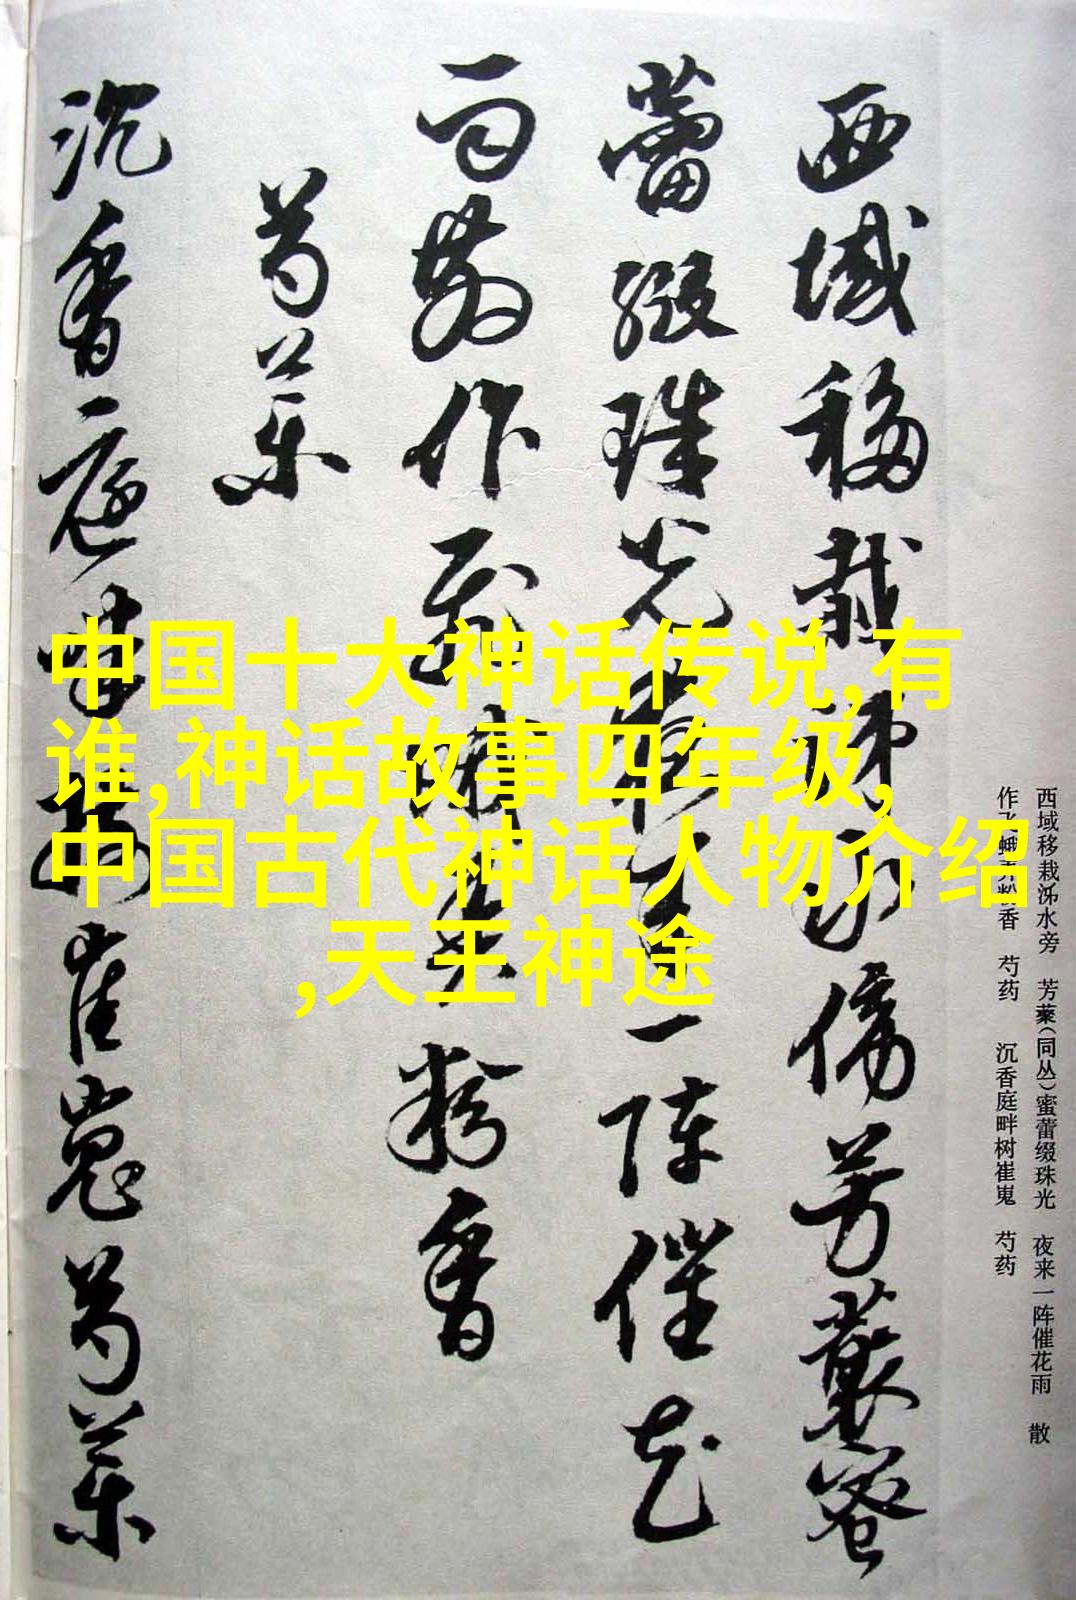 西域移栽沵水傍芳藂蜜
蕾缀珠光夜来一陣催花
雨散作飛蛾弄粉香
芍药
沉香庭畔樹崔嵬芍药
西域移栽沵水旁　芳藂(同丛)蜜蕾缀珠光　夜来一阵催花雨　散
作飞蛾弄粉香　芍药　沉香庭畔树崔嵬　芍药
中国十大神话传说,有
谁,神话故事四年级,
中国古代神话人物介绍
,天王神途